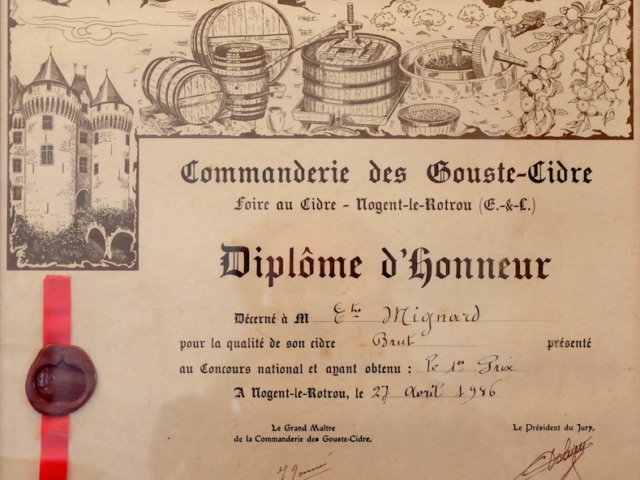 Commanderie des Gouste-Cidre
Foire au Cidre - Nogent-le-Rotrou (E.-&-L.)
Diplôme d'Honneur
Décerné à M Ets Mignard
pour la qualité de son cidre Brut présenté
au Concours national et ayant obtenu : le 1er Prix
A Nogent-le-Rotrou, le 27 Avril 1986
Le Grand Maître
de la Commanderie des Gouste-Cidre,
Le Président du Jury,